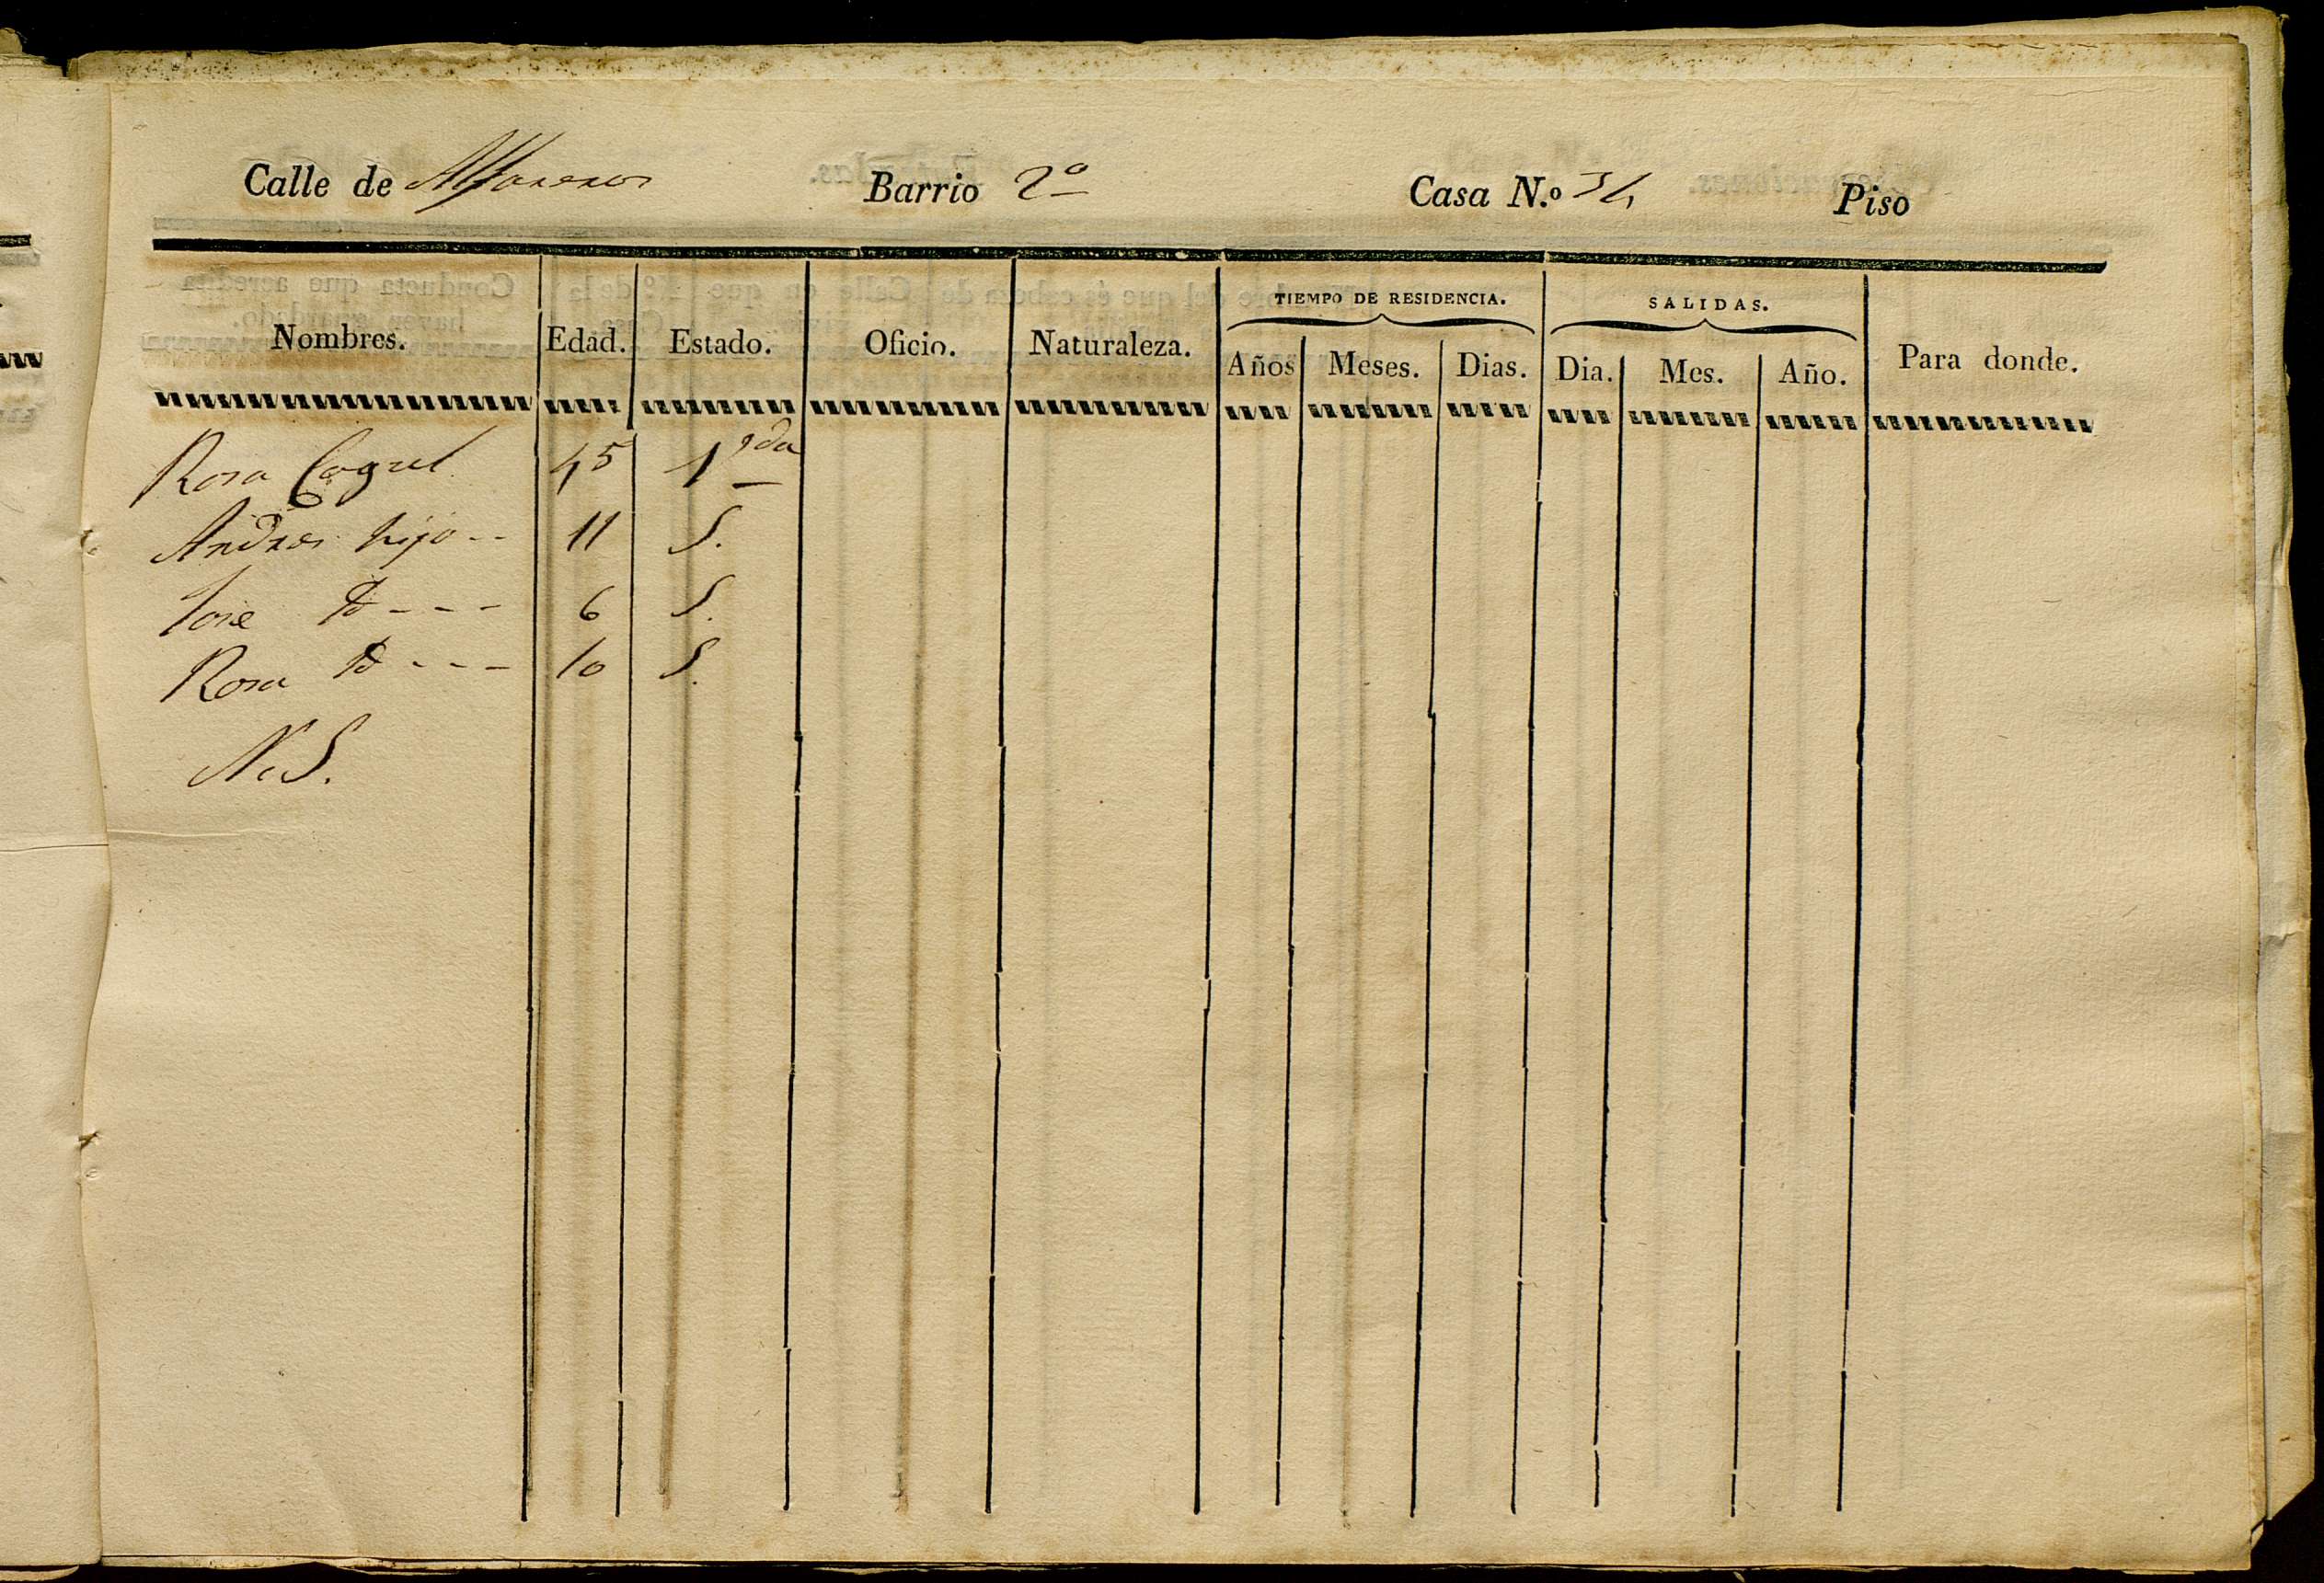 Calle de Alfareros Barrio 2º Casa N.º 34 Piso
TIEMPO DE RESIDENCIA. SALIDAS.
Nombres. Edad. Estado. Oficio. Naturaleza. Años Meses. Dias. Dia. Mes. Año. Para donde.
Rosa 45 Vda
Andres hijo -- 11 S.
Jose Yd --- 6 S.
Rosa Yd --- 10 S.
N. S.